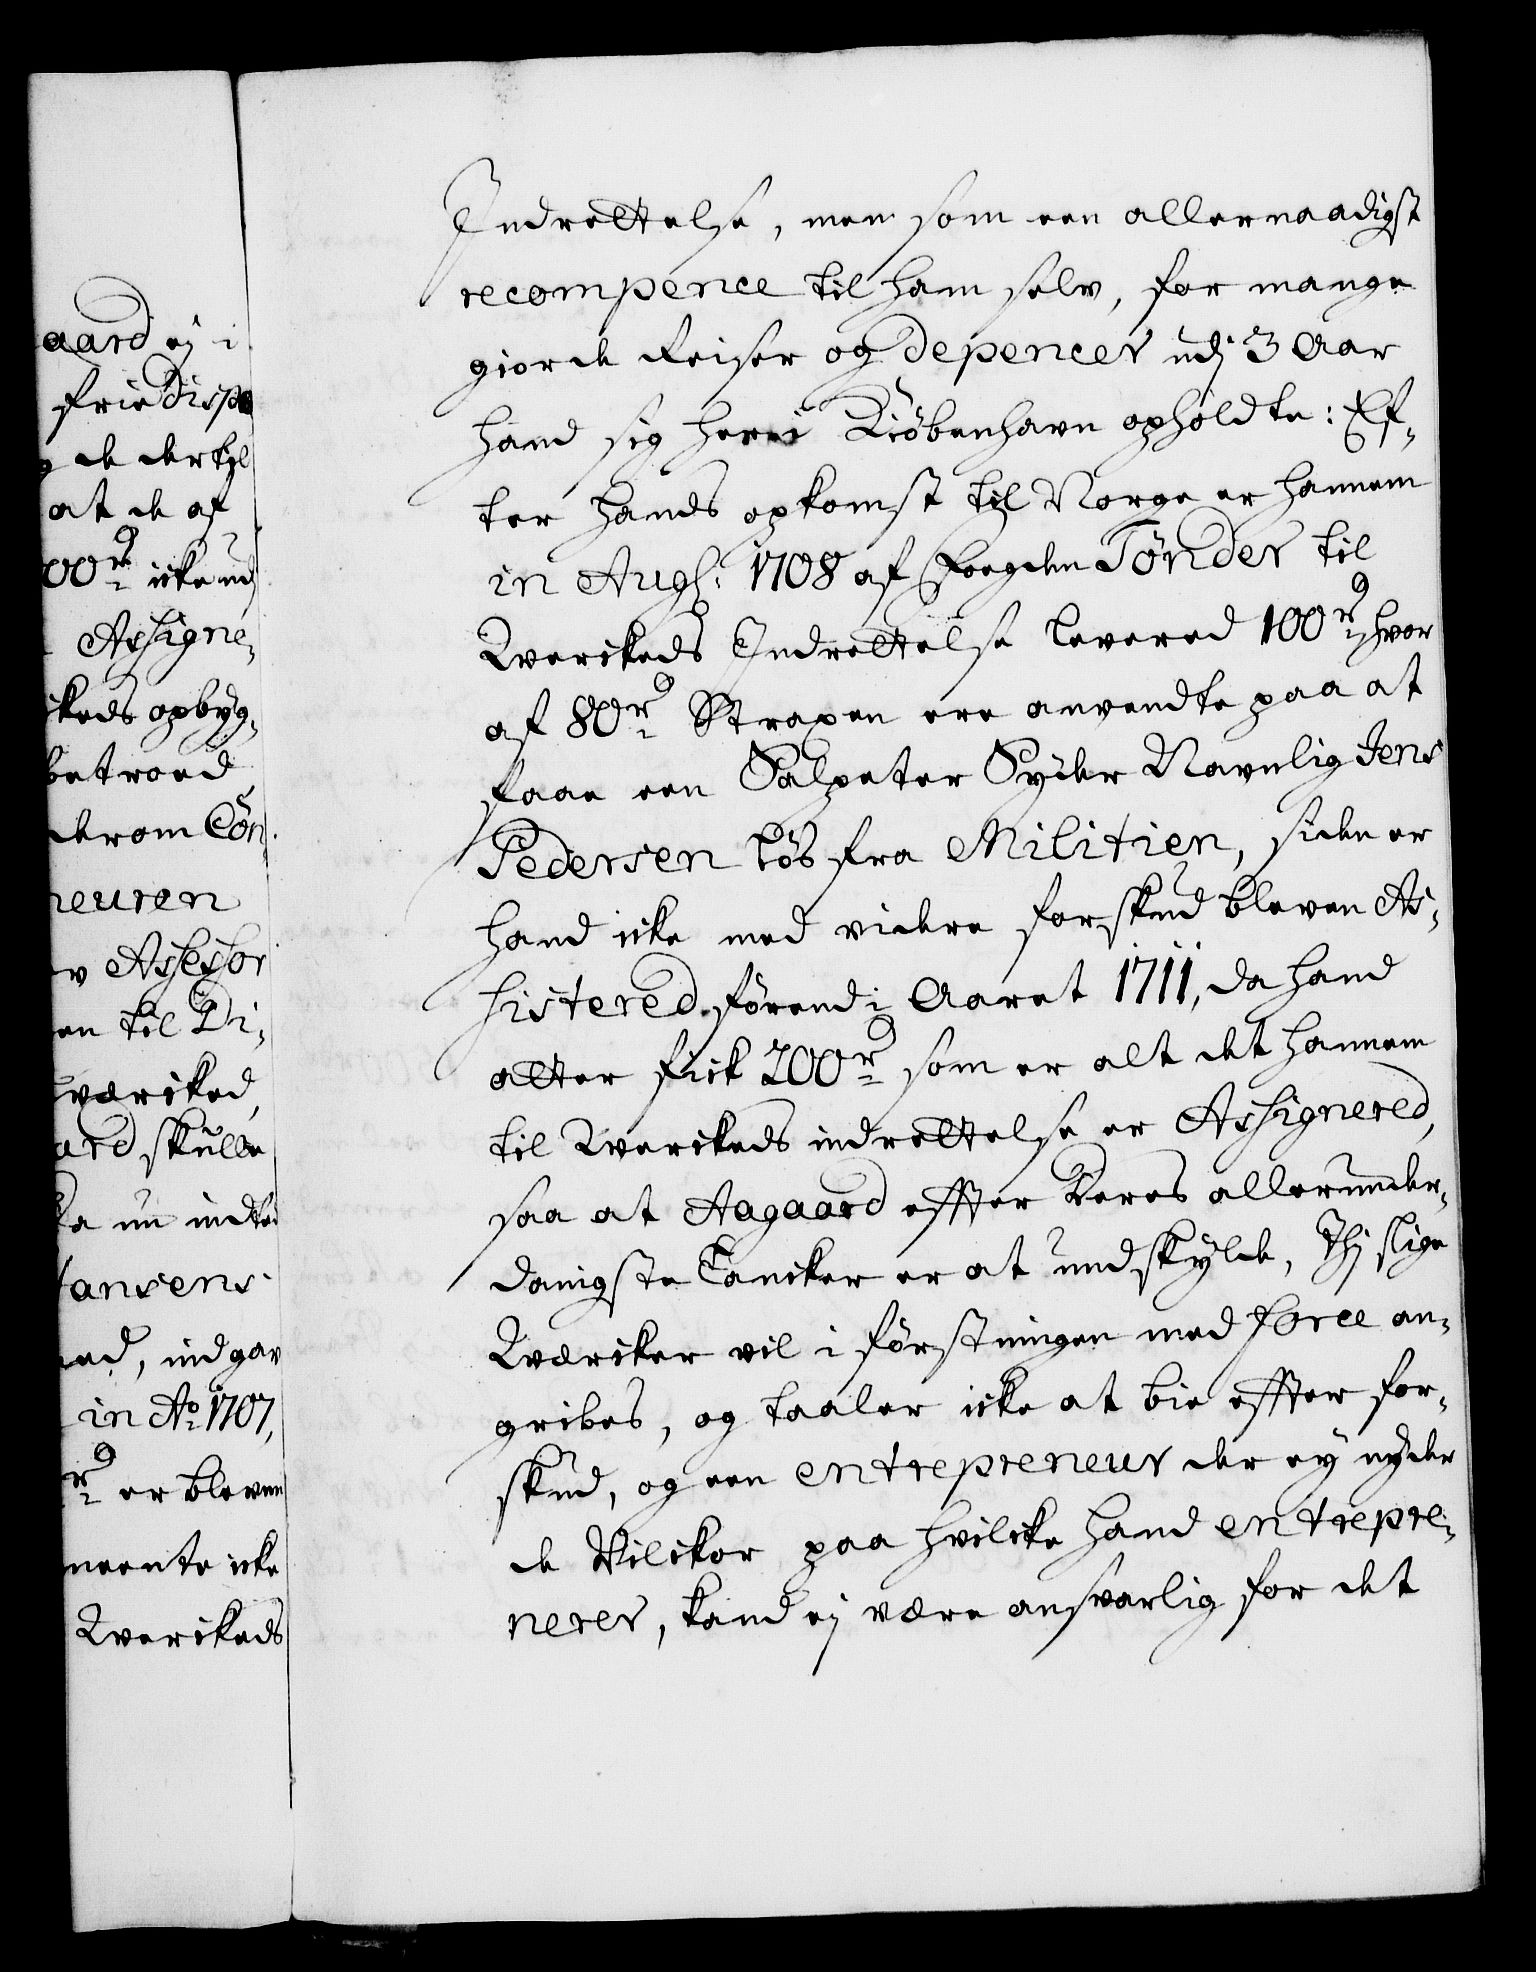 aard ej i
frie dispo
g de dertil
at de af
00 rd icke udj
Assigne-
ckeds opbyg-
betroed
derom Con-
neuren
v Assessor
en til Di-
værcked,
ard skulle
ke nu indtei
hansens
ned, indgav
in Ao 1707,
rd er bleven
meente icke
Wærckeds
Indrettelse, men som een allernaadigst
recompence til ham selv, for mange
giorde Reiser og depencer udj 3 Aar
hand sig her i Kiöbenhavn opholdte: Ef-
ter hands opkomst til Norge er hannem
in Augs: 1708 af Fogden Tønder til
Werckeds Indrettelse levered 100 rd hvor
af 80 rd Strapen ere anvendte paa at
faae een Salpeter Syder Navnlig Jens
Pedersen løs fra Militien, siden er
hand icke med videre forskud bleven As-
sistered förend i Aaret 1711, da hand
atter fick 200 rd som er alt det hannem
til Werckeds indrettelse er Assignered,
saa at Aagaard effter Deres allerunder-
danigste Tancker er at undskylde, Thj slige
Wærcker vil i förstningen med force an-
gribes, og taaler icke at bie effter for-
skud, og een entrepreneur der ey nyder
de Vilckor paa hvilcke hand entrepre-
nerer, kand ej være ansvarlig for det